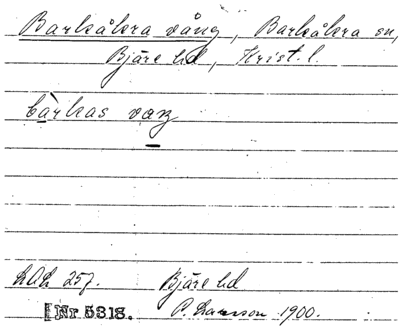 Barkåkra vång, Barkåkra sn,
Bjäre hd, Krist. l.
bàrkas vaŋ
LAL 257. Bjäre hd
[Nr 5318. P. Larsson 1900.